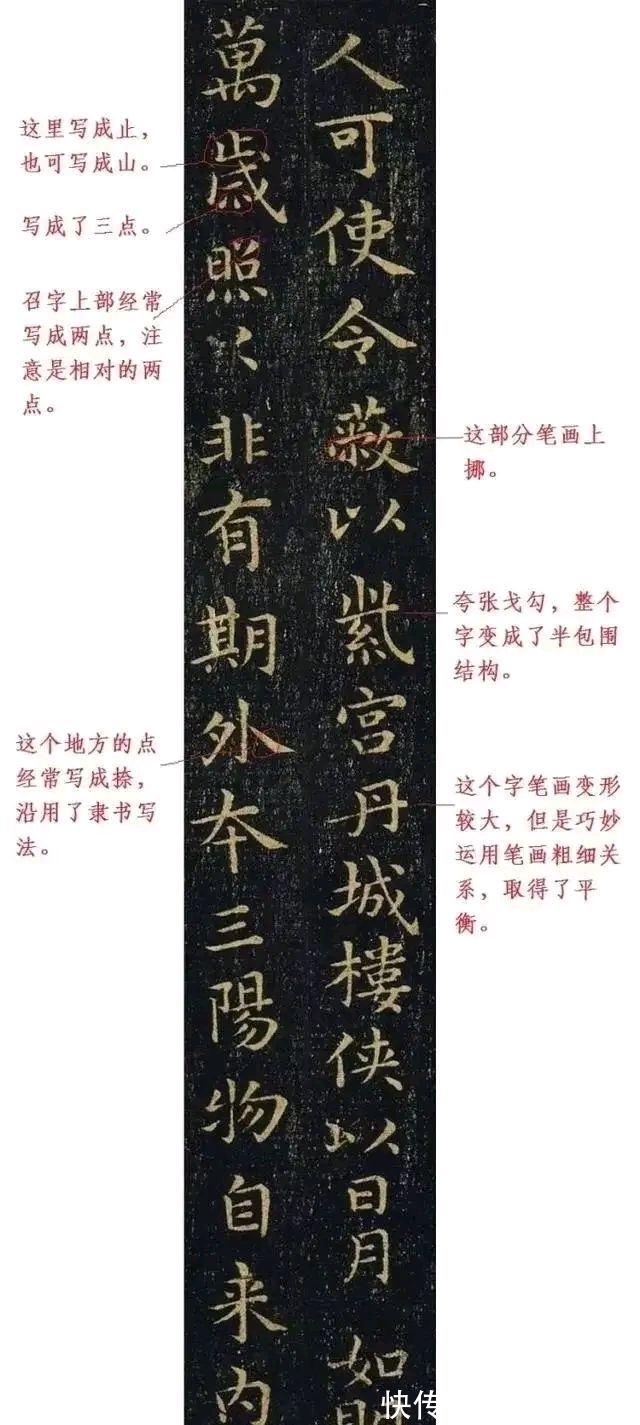 人可使令蔽以紫宫丹城樓侠以日月如
萬歲照〻非有期外夲三陽物自来内
这里写成止，
也可写成山。
写成了三点。
召字上部经常
写成两点，注
意是相对的两
点。
这个地方的点
经常写成捺，
沿用了隶书写
法。
这部分笔画上
挪。
夸张戈勾，整个
字变成了半包围
结构。
这个字笔画变形
较大，但是巧妙
运用笔画粗细关
系，取得了平
衡。
快传